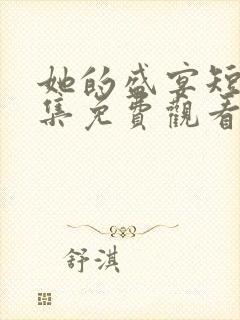 她的盛宴短
集免費觀看
舒淇